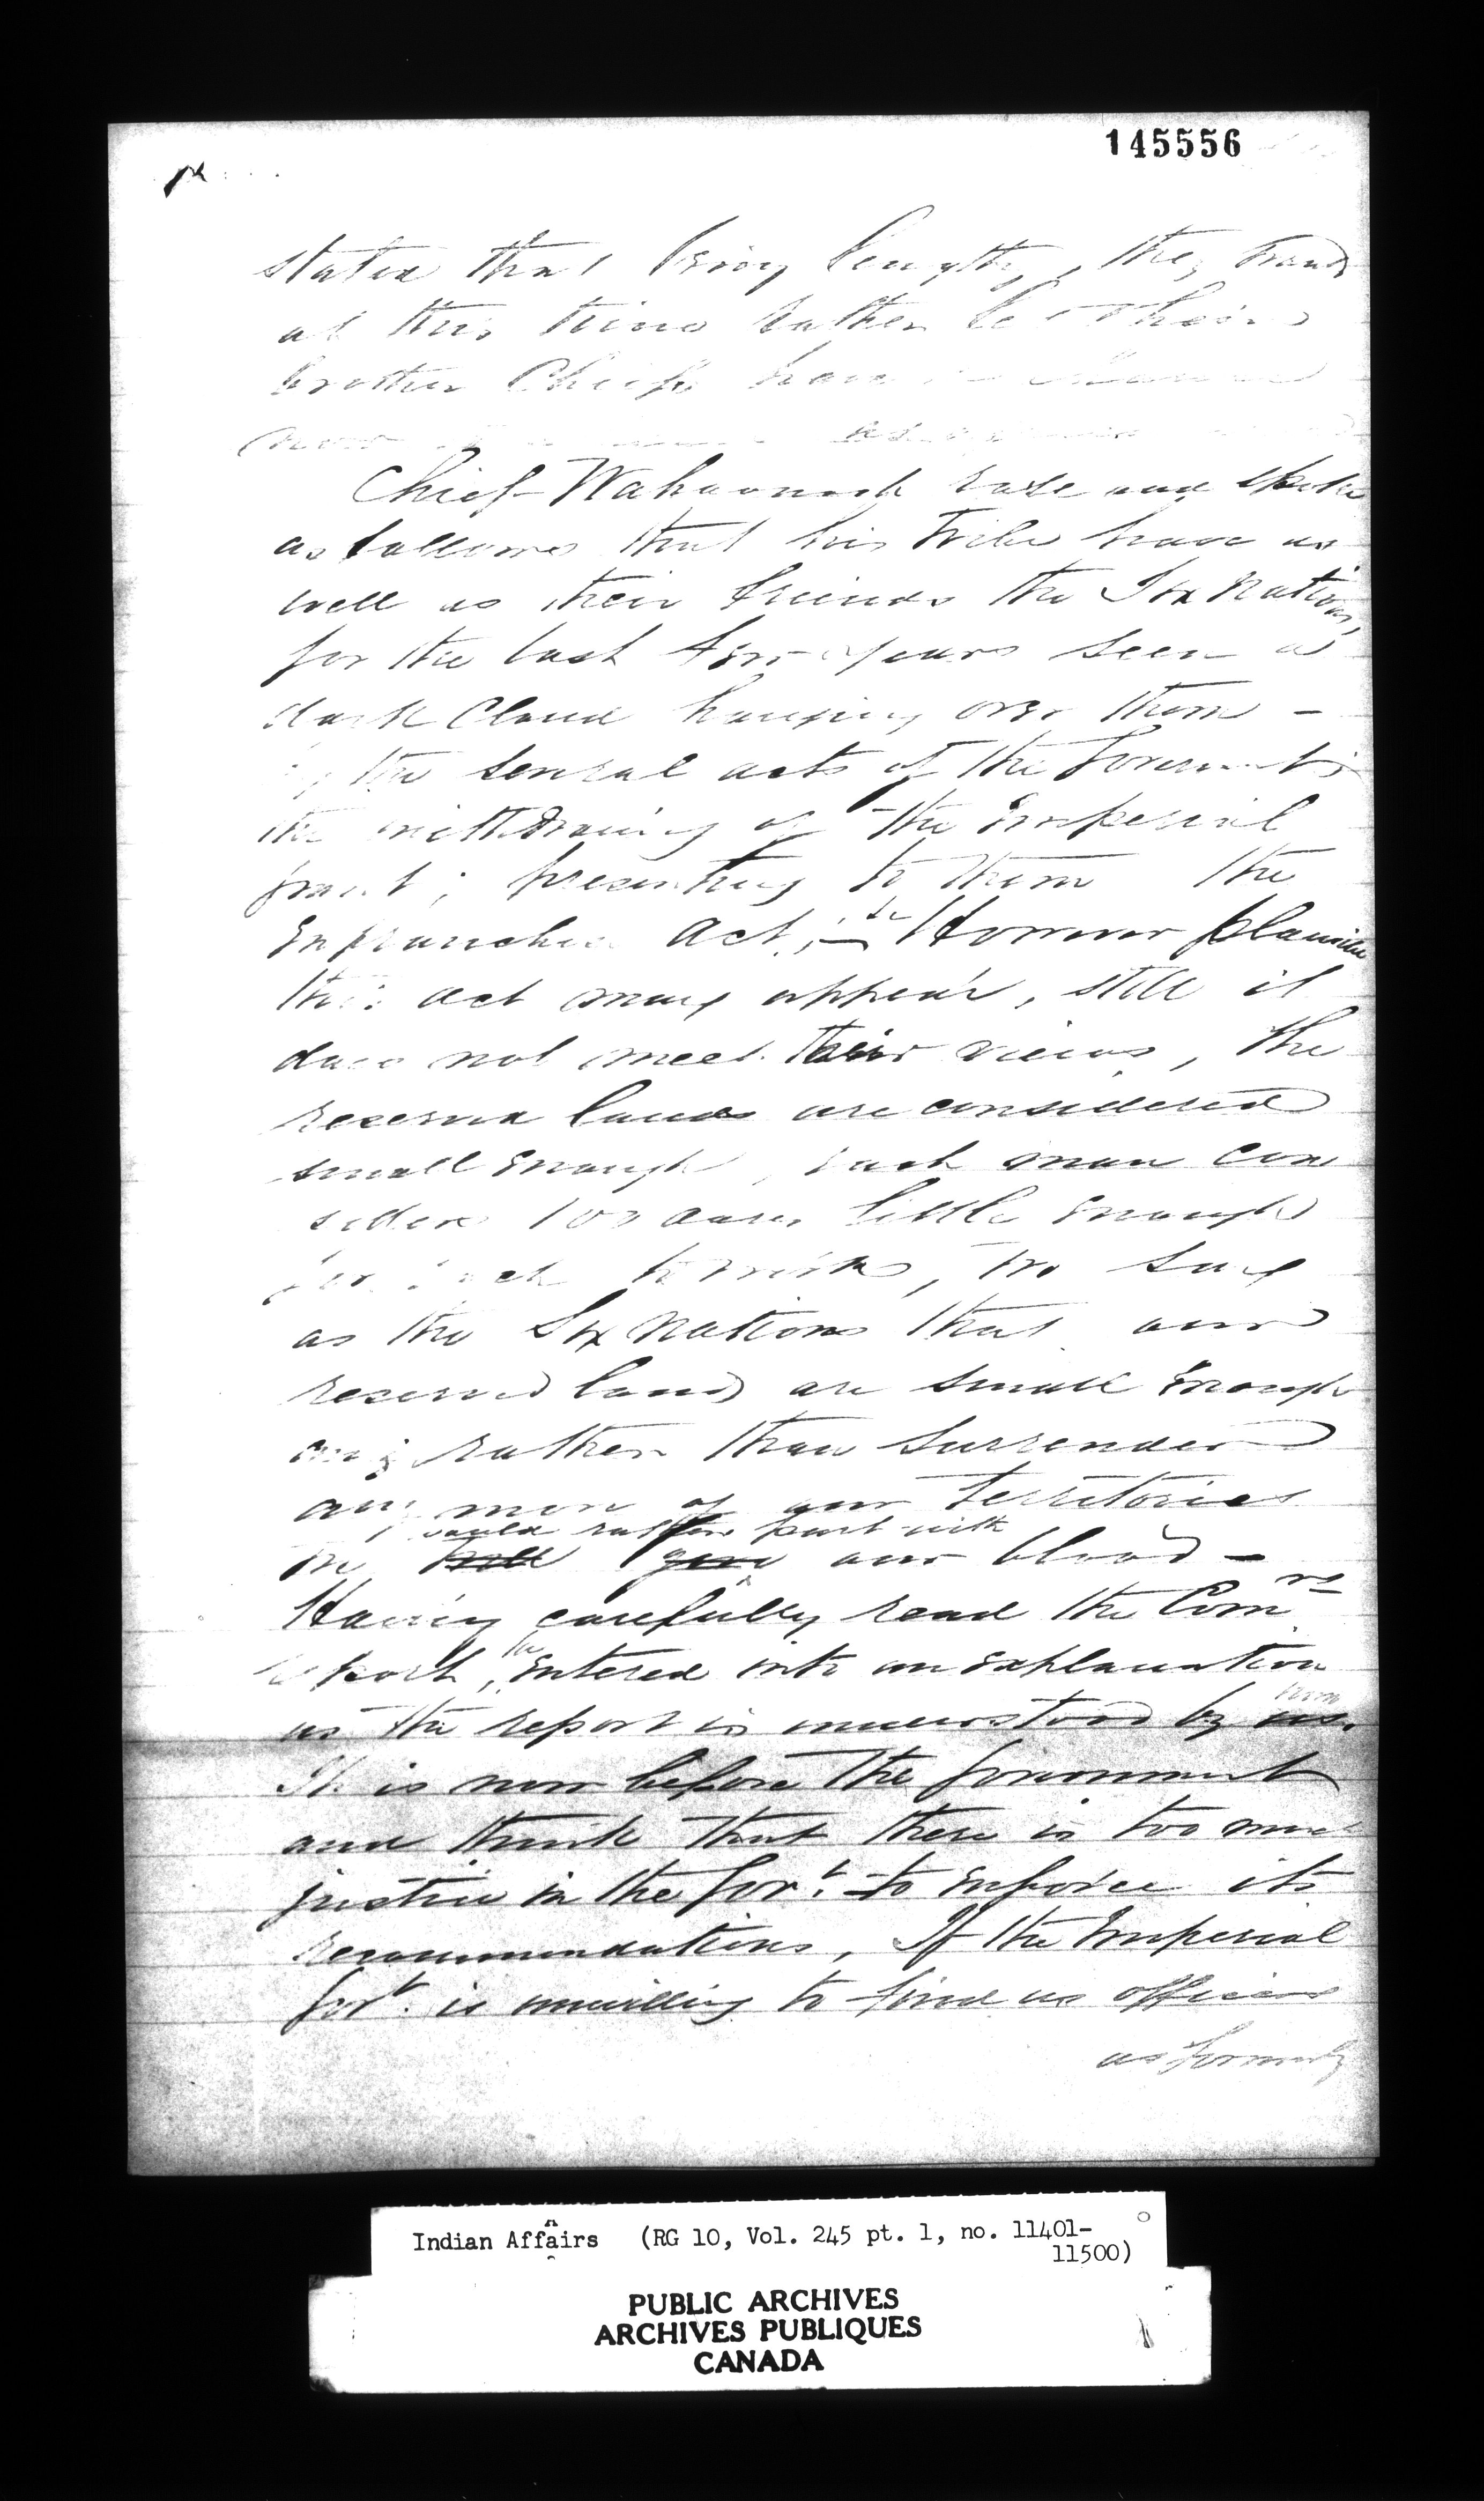 145556
stated that being length, they would
at this time rather let their
brother Chiefs have
Chief Wahwanosh rose and spoke
as follows that his Tribe have as
well as their friends the Six Nations,
for the last few years seen a
dark Cloud hanging over them –
by the several acts of the Goverment
the withdrawing of the Imperial
grant; presenting to them the
Enfranchise Act, However plausible
this act may appear, still it
does not meet their views, the
reserve lands are considered
small enough, each man con
siders 100 acres little enough
for each to work, we say
as the Six Nations that our
reserved lands are small enough
and rather than surrender
any more of our territories
would rather part with
we will give our blood –
Having carefully read the Comrs
report, he entered into an explanation
as the report is understood by us. them
It is now before the government
and think that there is too much
justice in the Govt. to enforce its
recommendations, If the Imperial
Govt. is unwilling to find us officers
as formerly
Indian Affairs (RG 10, Vol. 245 pt. 1, no. 11401-
11500)
PUBLIC ARCHIVES
ARCHIVES PUBLIQUES
CANADA